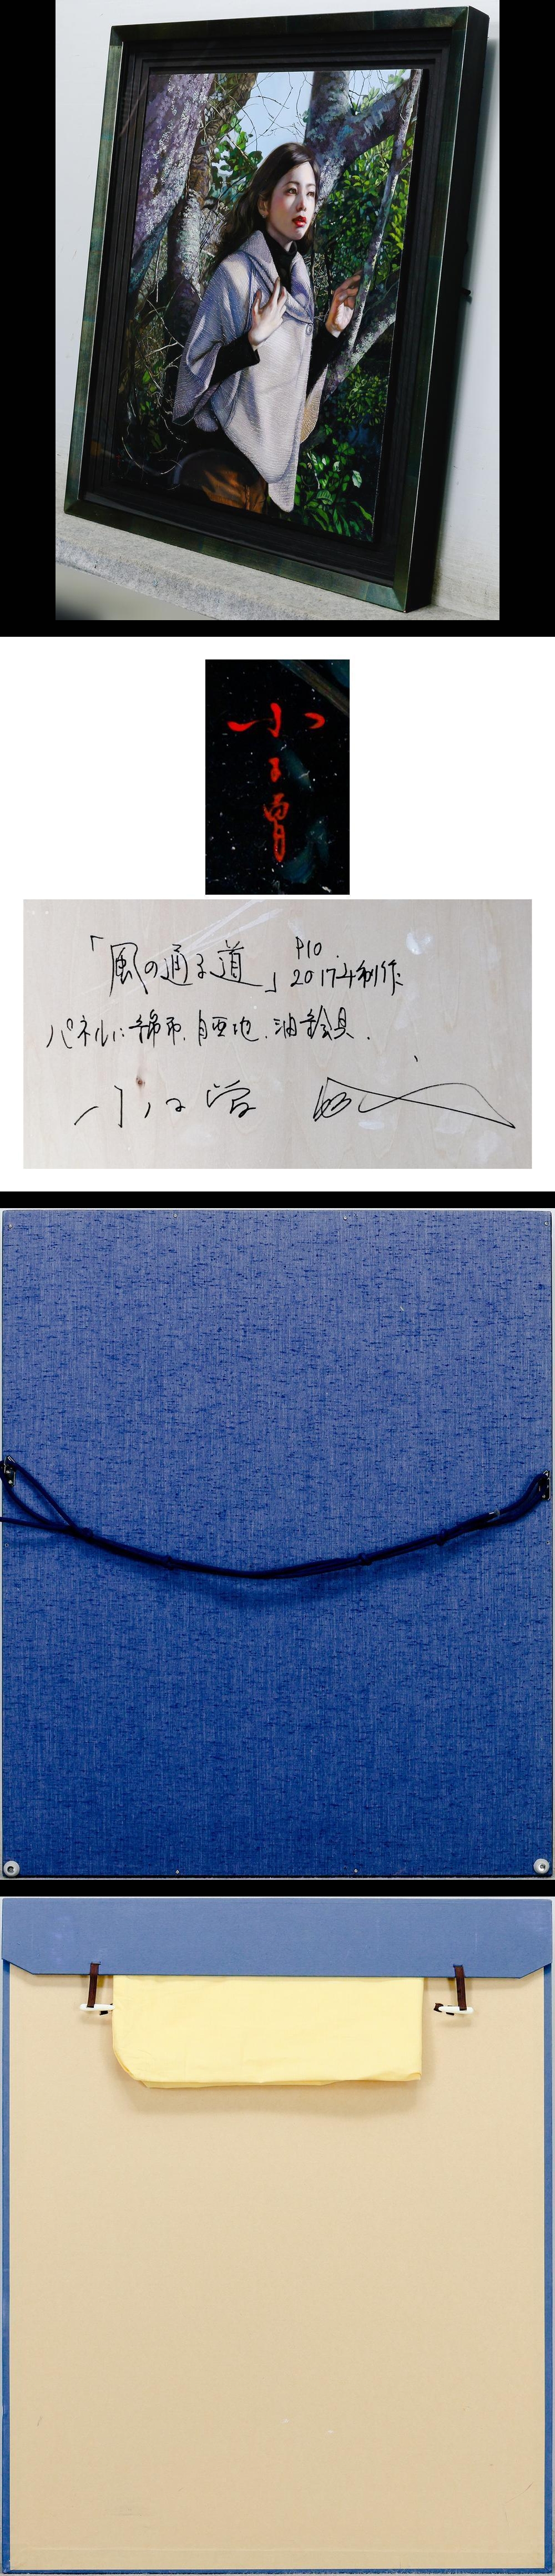 小木曽
「風の通る道」 P10.
2017年制作
パネルに綿布、白亜地、油絵具.
小木曽